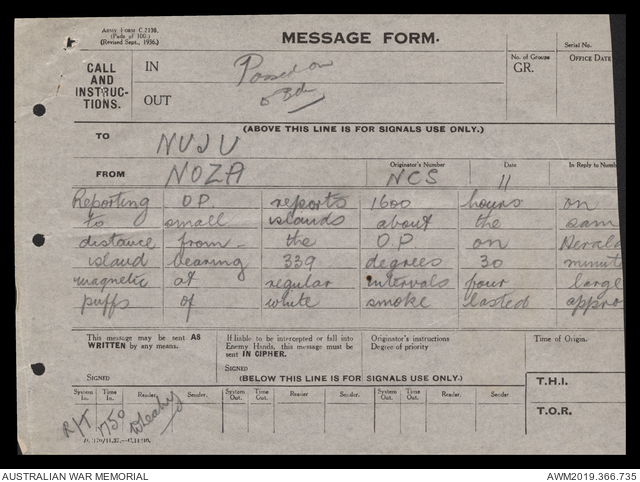 Army Form C.2138.
(Pads of 100.)
(Revised Sept., 1936.)
MESSAGE FORM.
Serial No.
CALL
AND
INSTRUC-
TIONS.
IN
OUT
Passed on
No. of Groups
GR.
OFFICE DATE
(ABOVE THIS LINE IS FOR SIGNALS USE ONLY.)
TO NUJU
FROM NOZA
Originator's Number
NCS
Date
11
In Reply to Number
Reporting O.P. reports 1600 hours on
to small islands about the sam
distance from the O.P on Herald
island bearing 339 degrees 30 minute
magnetic at regular intervals four large
puffs of white smoke lasted appro
This message may be sent AS
WRITTEN by any means.
SIGNED
If liable to be intercepted or fall into
Enemy Hands, this message must be
sent IN CIPHER.
SIGNED
Originator's instructions
Degree of priority
Time of Origin.
(BELOW THIS LINE IS FOR SIGNALS USE ONLY.)
T.H.I.
T.O.R.
System In. Time In. Reader. Sender. System Out. Time Out. Reader Sender. System Out. Time Out. Reader Sender.
R/T 1750
AUSTRALIAN WAR MEMORIAL
AWM2019.366.735